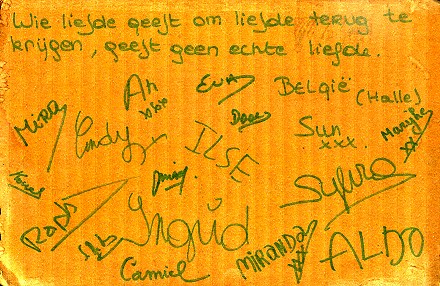 Wie liefde geeft om liefde terug te
krijgen, geeft geen echte liefde.
An
xxx
EVA
BELGIË (Halle)
MIRA
Cindy
ILSE
Sun
xxx.
Marijke
xx
Sylvia
RAPH
Ingrid
Camiel
MIRANDA
xx
ALDO